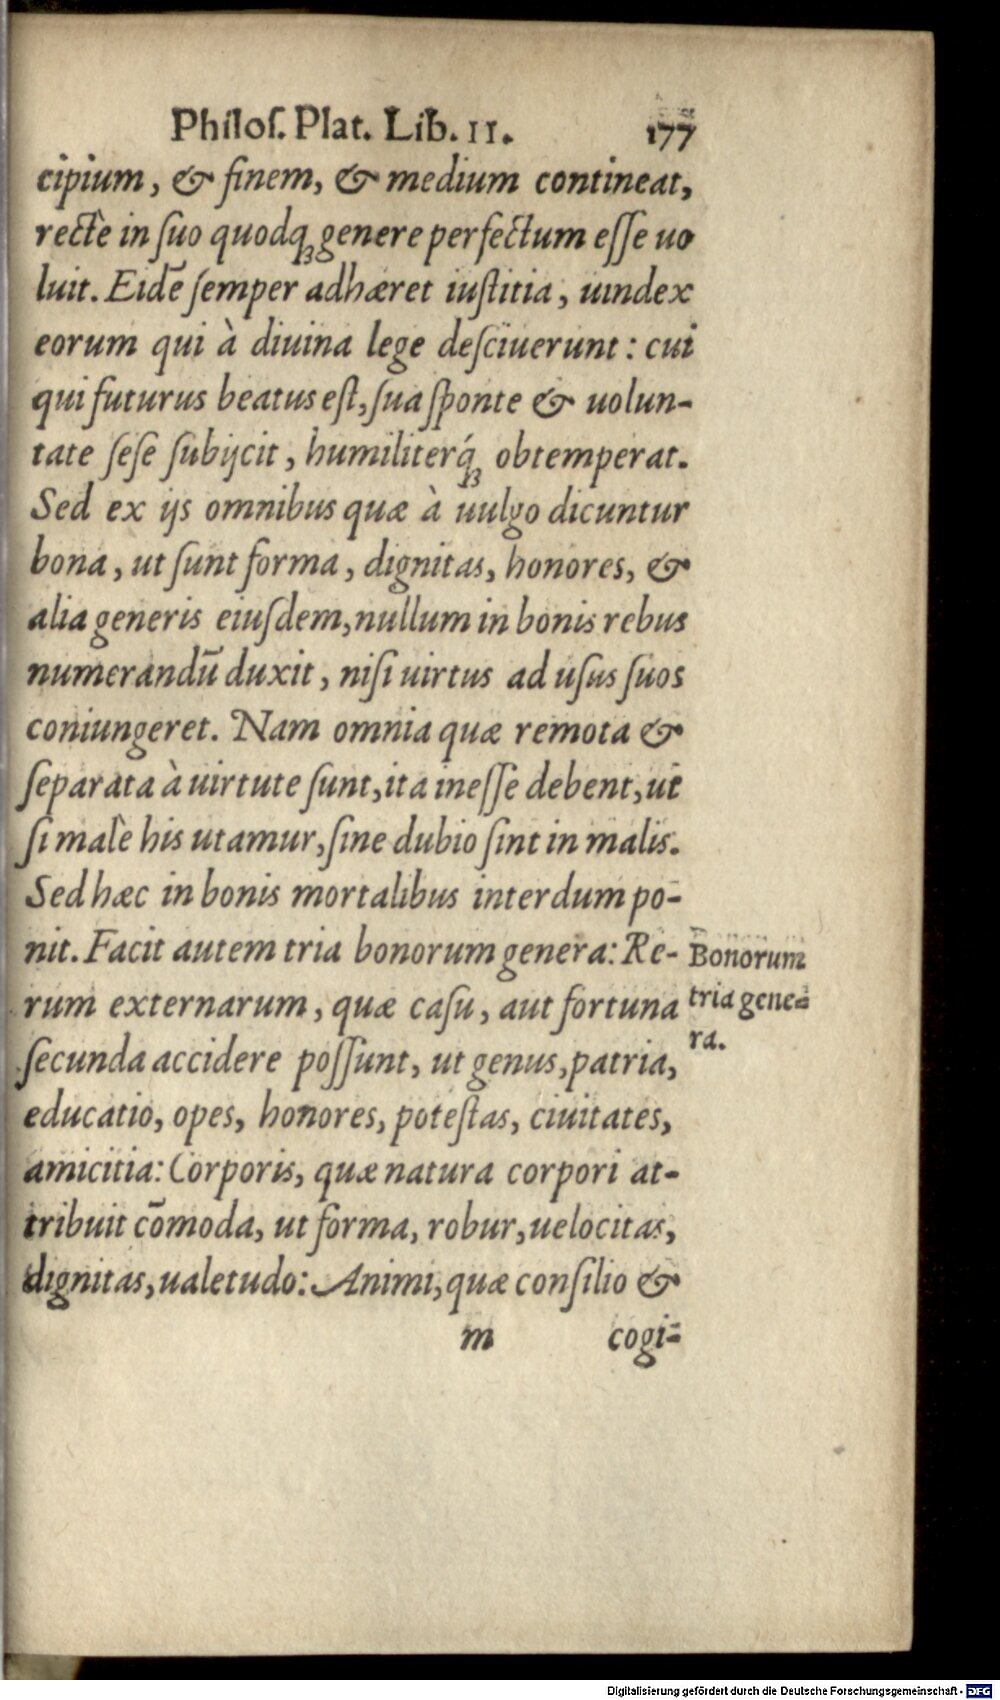 Philoſ. Plat. Lib. II. 177
cipium, & finem, & medium contineat,
rectè in ſuo quodq́ꝫ genere perfectum eſſe uo
luit. Eidē ſemper adhæret iuſtitia, uindex
eorum qui à diuina lege deſciuerunt: cui
qui futurus beatus eſt, ſua ſponte & uolun-
tate ſeſe ſubijcit, humiliterq́ꝫ obtemperat.
Sed ex ijs omnibus quæ à uulgo dicuntur
bona, ut ſunt forma, dignitas, honores, &
alia generis eiuſdem, nullum in bonis rebus
numerandū duxit, niſi uirtus ad uſus ſuos
coniungeret. Nam omnia quæ remota &
ſeparata à uirtute ſunt, ita ineſſe debent, ut
ſi malè his utamur, ſine dubio ſint in malis.
Sed hæc in bonis mortalibus interdum po-
nit. Facit autem tria bonorum genera: Re-
rum externarum, quæ caſu, aut fortuna
ſecunda accidere poſſunt, ut genus, patria,
educatio, opes, honores, poteſtas, ciuitates,
amicitia: Corporis, quæ natura corpori at-
tribuit cōmoda, ut forma, robur, uelocitas,
dignitas, ualetudo: Animi, quæ conſilio &
m cogi-
Bonorum
tria gene-
ra.
Digitalisierung gefördert durch die Deutsche Forschungsgemeinschaft - DFG